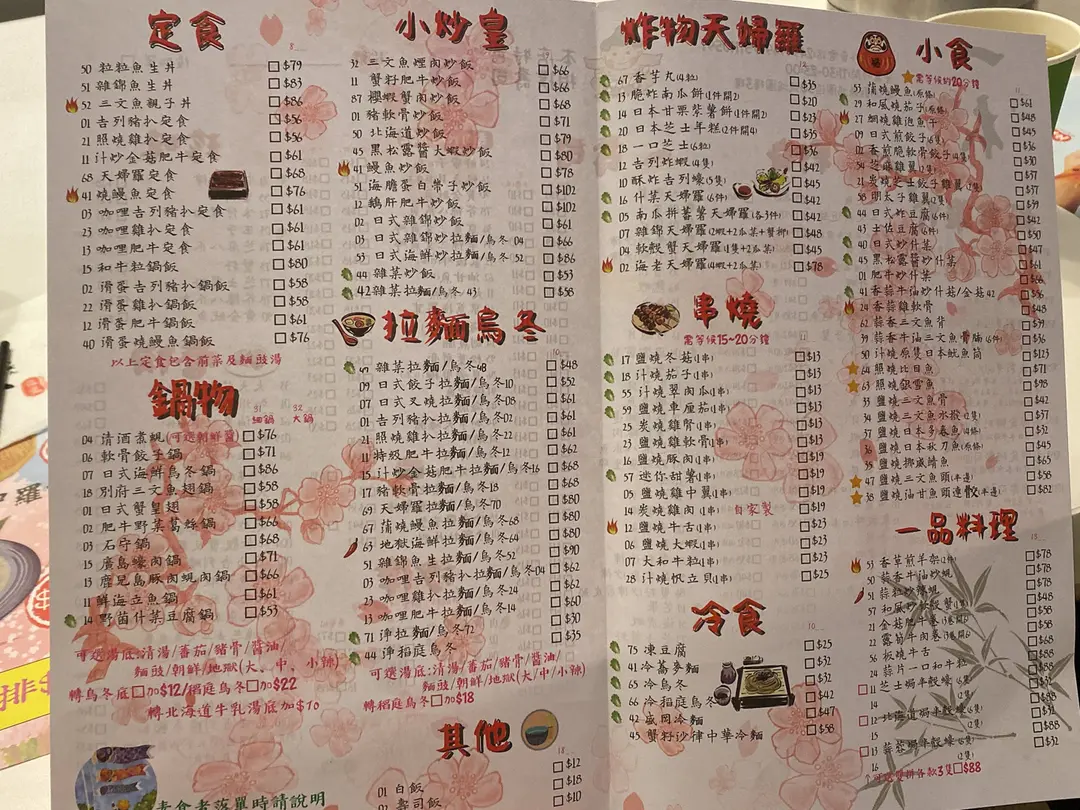 定食
50 粒粒魚生丼 $79
51 雜錦魚生丼 $83
52 三文魚親子丼 $86
01 吉列豬扒定食 $56
21 照燒雞扒定食 $56
11 汁炒金菇肥牛定食 $61
68 天婦羅定食 $68
41 燒鰻魚定食 $76
03 咖哩吉列豬扒定食 $61
23 咖哩雞扒定食 $61
13 咖哩肥牛定食 $61
15 和牛粒鍋飯 $80
02 滑蛋吉列豬扒鍋飯 $58
22 滑蛋雞扒鍋飯 $58
12 滑蛋肥牛鍋飯 $61
40 滑蛋燒鰻魚鍋飯 $76
以上定食包含前菜及麵豉湯
鍋物
31 細鍋 32 大鍋
04 清酒煮蜆(可選朝鮮醬) $76
06 軟骨餃子鍋 $71
07 日式海鮮烏冬鍋 $86
18 別府三文魚翅鍋 $58
01 日式蟹皇翅 $58
02 肥牛野菜葛絲鍋 $66
03 石守鍋 $68
15 廣島蠔肉鍋 $71
13 鹿兒島豚肉蜆肉鍋 $66
11 鮮海立魚鍋 $61
14 野菌什菜豆腐鍋 $53
可選湯底:清湯/番茄/豬骨/醬油/
麵豉/朝鮮/地獄(大、中、小辣)
轉烏冬底加$12/稻庭烏冬加$22
轉北海道牛乳湯底加$10
素食者落單時請說明
小炒皇
32 三文魚煙肉炒飯 $66
11 蟹籽肥牛炒飯 $66
87 櫻蝦蟹肉炒飯 $68
01 豬軟骨炒飯 $71
50 北海道炒飯 $79
45 黑松露醬大蝦炒飯 $80
41 鰻魚炒飯 $78
51 海膽蛋白帶子炒飯 $102
12 鵝肝肥牛炒飯 $102
02 日式雜錦炒飯 $61
03 日式雜錦炒拉麵/烏冬 04 $66
53 日式海鮮炒拉麵/烏冬 52 $86
44 雜菜炒飯 $53
42 雜菜拉麵/烏冬 43 $58
拉麵烏冬
49 雜菜拉麵/烏冬48 $48
09 日式餃子拉麵/烏冬10 $52
07 日式叉燒拉麵/烏冬08 $61
01 吉列豬扒拉麵/烏冬02 $61
21 照燒雞扒拉麵/烏冬22 $61
11 特級肥牛拉麵/烏冬12 $62
15 汁炒金菇肥牛拉麵/烏冬16 $68
17 豬軟骨拉麵/烏冬18 $68
69 天婦羅拉麵/烏冬70 $68
67 蒲燒鰻魚拉麵/烏冬68 $80
63 地獄海鮮拉麵/烏冬64 $80
51 雜錦魚生拉麵/烏冬52 $90
03 咖哩吉列豬扒拉麵/烏冬04 $62
23 咖哩雞扒拉麵/烏冬24 $62
13 咖哩肥牛拉麵/烏冬14 $60
71 淨拉麵/烏冬72 $30
44 淨稻庭烏冬 $35
可選湯底:清湯/番茄/豬骨/醬油/
麵豉/朝鮮/地獄(大/中/小辣)
轉稻庭烏冬加$18
其他
01 白飯 $12
02 壽司飯 $18
$10
炸物天婦羅
67 香芋丸(4粒) $35
13 脆炸南瓜餅(1件開2) $20
14 日本甘栗紫薯餅(1件開2) $23
20 日本芝士年糕(2件開4) $35
18 一口芝士(6粒) $36
12 吉列炸蝦(4隻) $42
10 酥炸吉列蠔(5隻) $45
16 什菜天婦羅(6件) $42
05 南瓜拼蕃薯天婦羅(各3件) $42
07 雜錦天婦羅(2蝦+2瓜菜+蟹柳) $48
04 軟殼蟹天婦羅(1隻+2瓜菜) $45
02 海老天婦羅(4蝦+2瓜菜) $78
串燒
需等候15~20分鐘
17 鹽燒冬菇(1串) $13
18 汁燒茄子(1串) $13
55 汁燒翠肉瓜(1串) $13
59 鹽燒車厘茄(1串) $13
25 炭燒雞腎(1串) $13
23 鹽燒雞軟骨(1串) $13
16 鹽燒豚肉(1串) $19
57 迷你甜薯(1串) $19
05 鹽燒雞中翼(1串) $19
14 炭燒雞肉(1串)自家製 $19
12 鹽燒牛舌(1串) $23
06 鹽燒大蝦(1串) $23
07 大和牛粒(1串) $23
28 汁燒帆立貝(1串) $25
冷食
75 凍豆腐 $25
41 冷蕎麥麵 $32
65 冷烏冬 $32
66 冷稻庭烏冬 $42
42 盛岡冷麵 $47
45 蟹籽沙律中華冷麵 $58
小食
需等候約20分鐘
53 蒲燒鰻魚(原條) $61
29 和風燒茄子(原條) $48
27 鯛燒雞泡魚干 $45
09 日式煎餃子(6隻) $36
02 香煎脆軟骨餃子(4隻) $30
54 芝麻雞翼(2隻) $37
21 炭燒芝士餃子雞翼(2隻)
58 明太子雞翼(2隻) $39
44 日式炸豆腐(6件) $42
43 土佐豆腐(6件) $50
40 日式炒什菜 $47
45 黑松露醬炒什菜 $61
01 肥牛炒什菜
41 香蒜牛油炒什菜/金菇42 $36
24 香蒜雞軟骨
62 蒜香三文魚背
39 蒜香牛油三文魚骨腩(6件) $36
50 汁燒原隻日本魷魚筒 $123
64 照燒比目魚 $71
63 照燒銀雪魚 $98
33 鹽燒三文魚骨 $42
34 鹽燒三文魚水掀(2隻) $37
37 鹽燒日本多春魚(4條) $32
36 鹽燒日本秋刀魚(原條) $45
35 鹽燒挪威鯖魚 $65
47 鹽燒三文魚頭(半邊) $58
38 鹽燒油甘魚頭連骹(半邊) $82
一品料理
53 香草煎羊架(2件) $78
50 蒜香牛油炒蜆 $78
51 蒜辣炒辣蜆 $78
57 和風炒軟殼蟹(1隻) $48
21 金菇肥牛卷(3卷開6) $58
22 露筍牛肉卷(3卷開6)
56 板燒牛舌
24 蒜片一口和牛粒
11 芝士焗半殼蠔(6隻)
14 (2隻)
12 北海道焗半殼蠔(6隻)
15 (2隻)
13 蒜蓉焗半殼蠔(6隻) $88
16 (2隻) $32
可選雙拼各款3隻$88